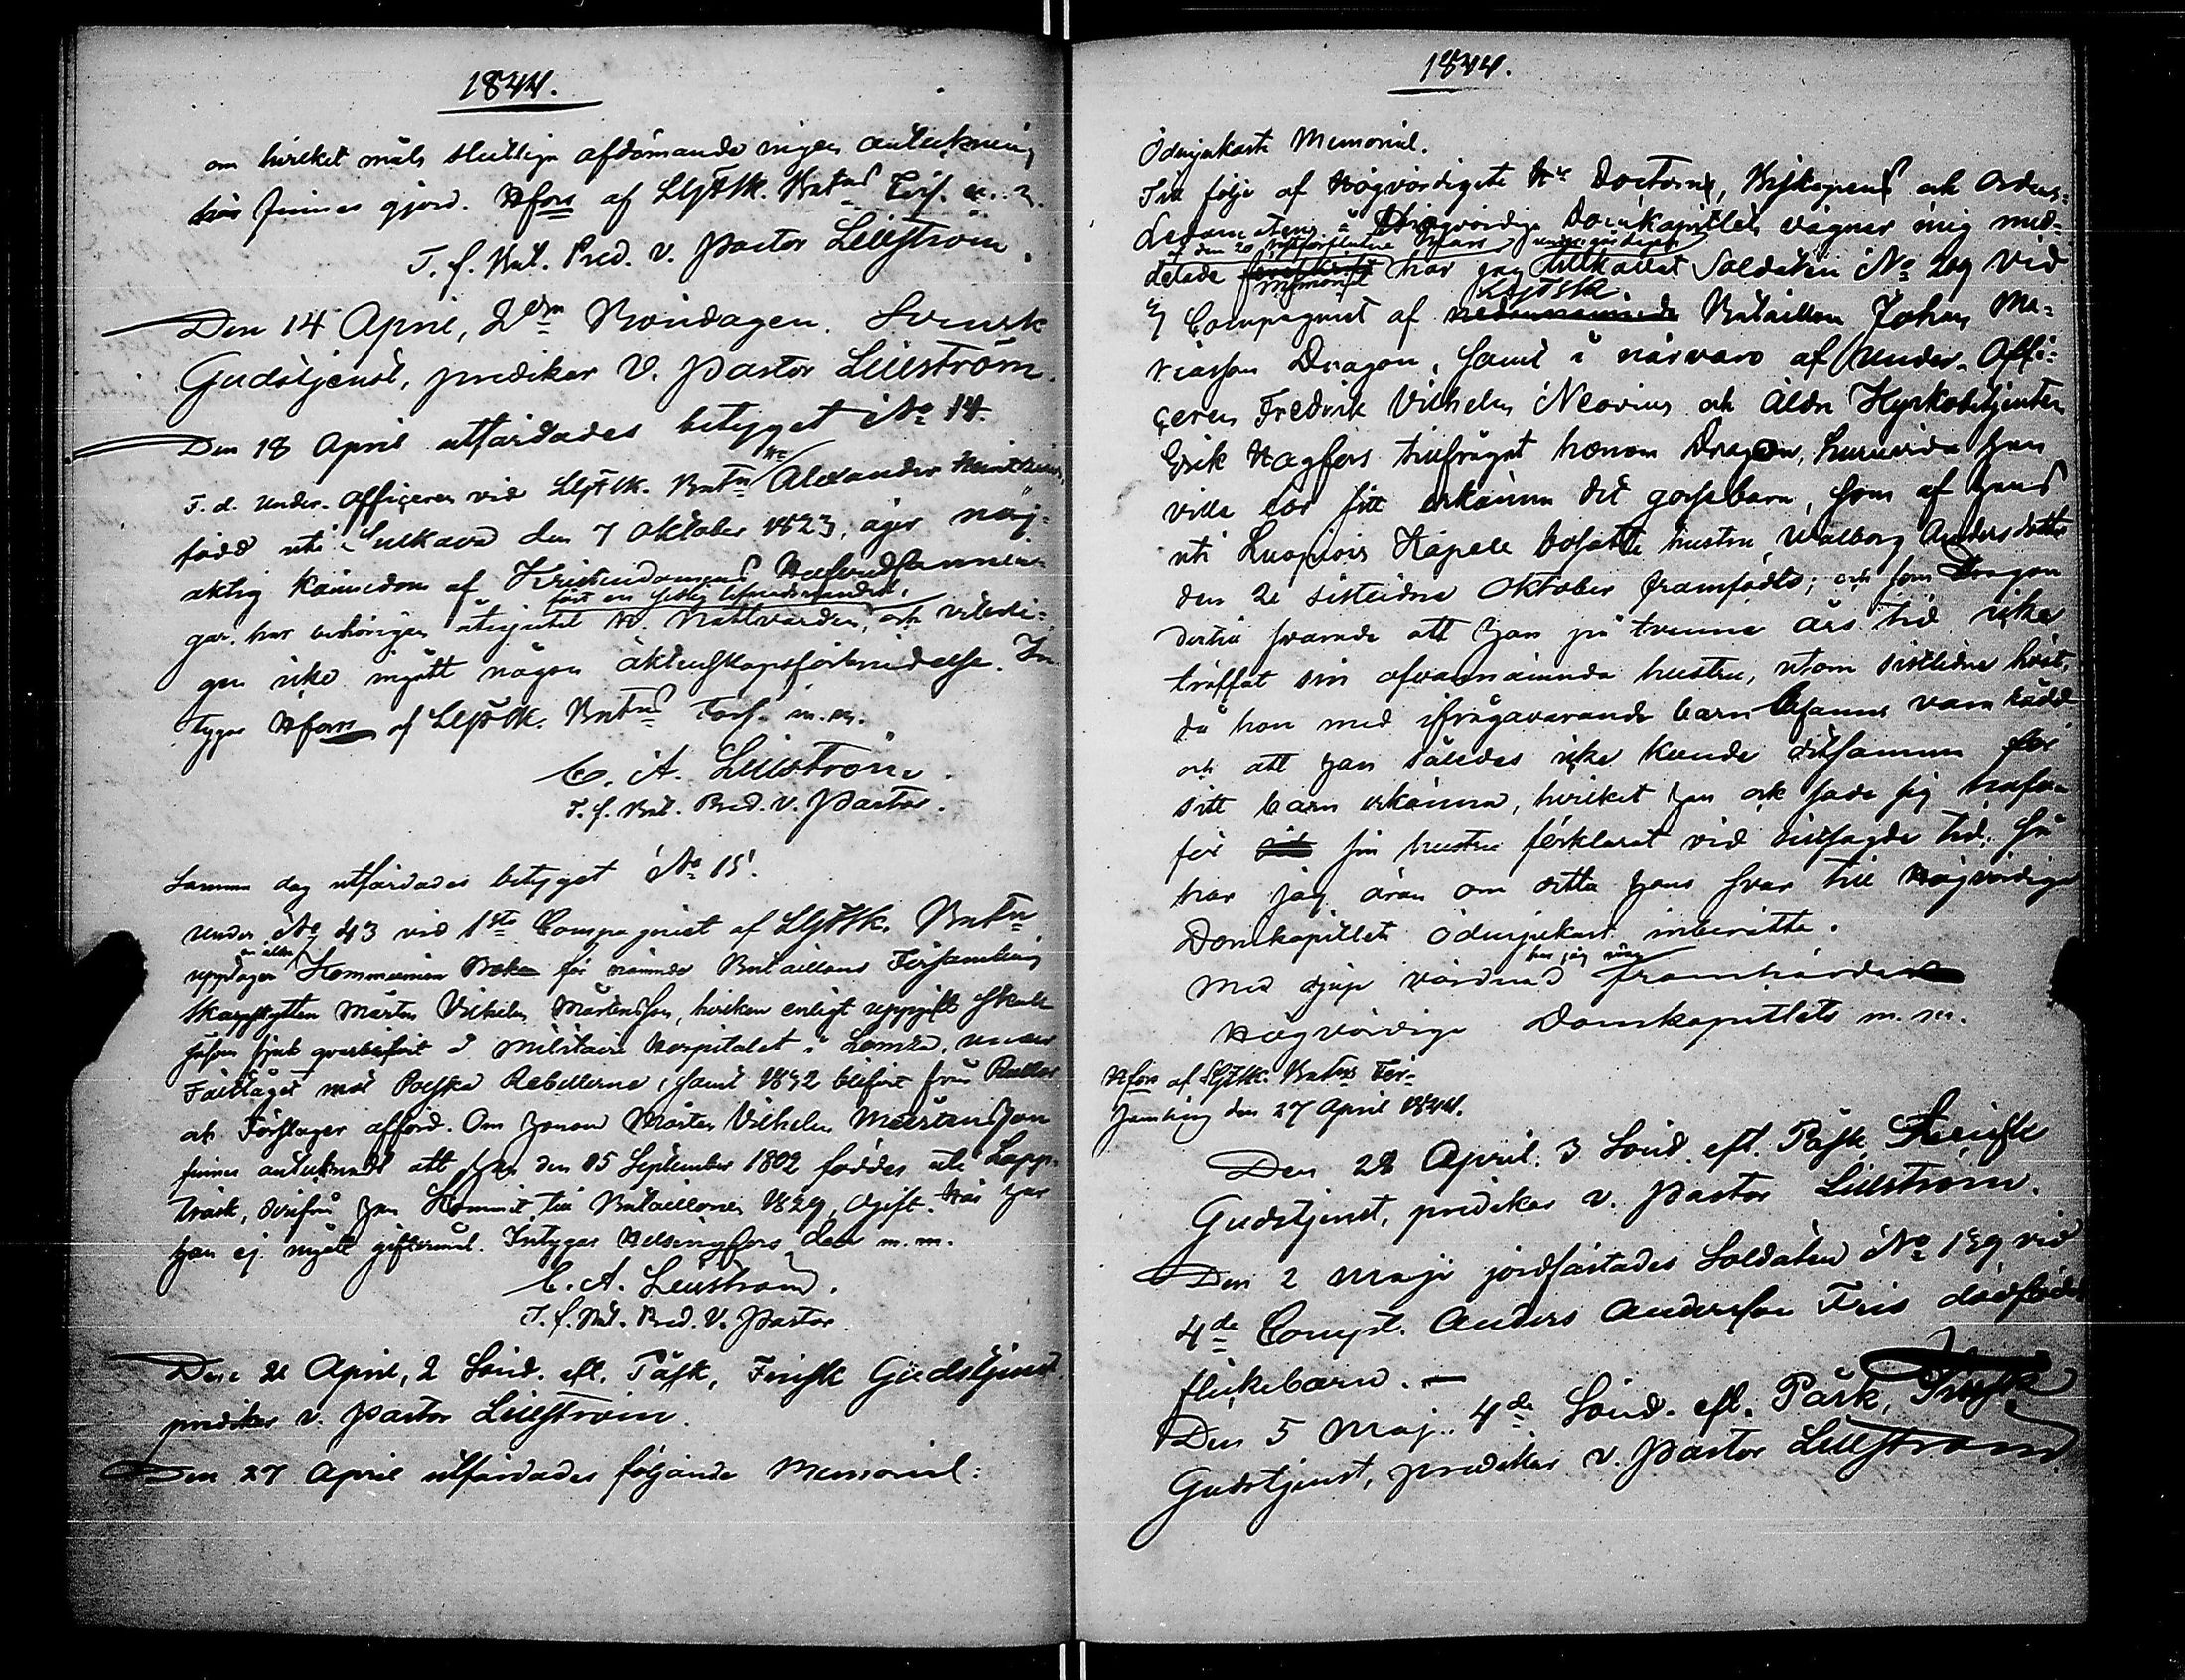 1844.
om hvilket måls slutliga afdömande ingen anteckning
här finnes gjord. Hfors af LGFSk. Batns Förs. m. m.
T. f. Bat. Pred. V. Pastor Lillström.
Den 14 April, 2dra Böndagen. Svensk
Gudstjenst, prediker V. Pastor Lillström.
Den 18 April utfärdades betyget No 14.
F. d. Under-Officeren vid LGFSk. Batn Hr Alexander
född uti Sulkava den 7 Oktober 1823, äger nöj-
aktig kännedom af Kristendomens Hufvudsannin-
gar, har behörigen fört en sedlig lefnadsvandel, åtnjutit H. Nattvarden, och veterli-
gen icke ingått någon äktenskapsförbindelse. In-
tygar Hfors af LGFSk. Batns Förs. m. m.
C. A. Lillström.
T. f. Bat. Pred. V. Pastor.
Samma dag utfärdades betyget No 15.
Under No 43 vid 1sta Compagniet af LGFSk. Batn
upptager en äldre Kommunion Boken för nämnde Bataillons Församling
Skarpskytten Mårten Vilhelm Mårtensson, hvilken enligt uppgift skall
såsom sjuk qvarblifvit i Militaire Hospitalet i Lomza, under
Fälttåget mot Polska Rebellerne, samt 1832 blifvit från Rullor
och Förslager afförd. Om honom Mårten Vilhelm Mårtensson
finnes antecknadt att han den 15 September 1802 föddes uti Lapp-
träsk, derifrån han kommit till Bataillonen 1829, ogift. Här har
han ej ingått giftermål. Intygar Helsingfors den m. m.
C. A. Lillström.
T. f. Bat. Pred. V. Pastor.
Den 21 April, 2 Sönd. eft. Påsk, Finsk Gudstjenst
prediker v. Pastor Lillström.
Den 27 April utfärdades följande Memorial:
1844.
Ödmjukaste Memorial.
Till följe af Högvördigste Hr Doctorns, Biskopens och Ordens-
Ledamotens å Högvördiga Domkapitlets vägnar mig med-
delade af den 20 sistförflutne Mars memorial har jag tillkallat Soldaten No 209 vid
3 Compagniet af LGFSk Bataillon Johan Ma-
thiasson Dragon, samt i närvaro af Under-Offi-
ceren Fredrik Vilhelm Neovius och Äldre Kyrkobetjenten
Erik Hagfors tillfrågat honom Dragon, huruvida han
ville för sitt erkänna det gossebarn, som af hans
uti Luopiois Kapell bosatte hustru Walborg Andersdotter
den 21 sistlidne Oktober framföddes; och som Dragon
dertill svarade att han på tvenne års tid icke
träffat sin ofvannämnda hustru, utom sistlidne höst,
då hon med ifrågavarande barn befanns vara rådd
och att han således icke kunde detsamma för
sitt barn erkänna, hvilket han ock sade sig hafva
för sin hustru förklarat vid sistsagde tid; så
har jag äran om detta hans svar till Högvördiga
Domkapitlet ödmjukast inberätta.
Med djup vördnad har jag äran framhärda
Högvördiga Domkapitlets m. m.
Hfors af LGFSk. Batns För-
samling den 27 April 1844.
Den 28 April. 3 Sönd. eft. Påsk, Svensk
Gudstjenst, prediker v. Pastor Lillström.
Den 2 Maji jordfästades Soldaten No 139 vid
4de Compt. Anders Andersson Fris dödfödde
flickebarn. —
Den 5 Maj. 4de Sönd. eft. Påsk, Finsk
Gudstjenst, prediker v. Pastor Lillström